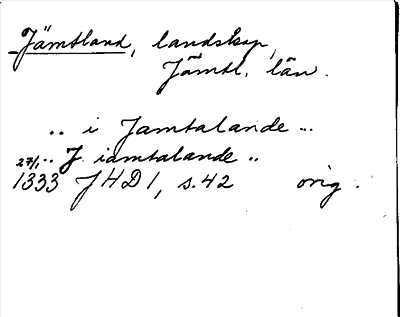 Jämtland, landskap,
Jämtl. län.
.. i Jamtalande ..
27/1 .. J iamtalande ..
1333 JHD 1, s. 42 orig.